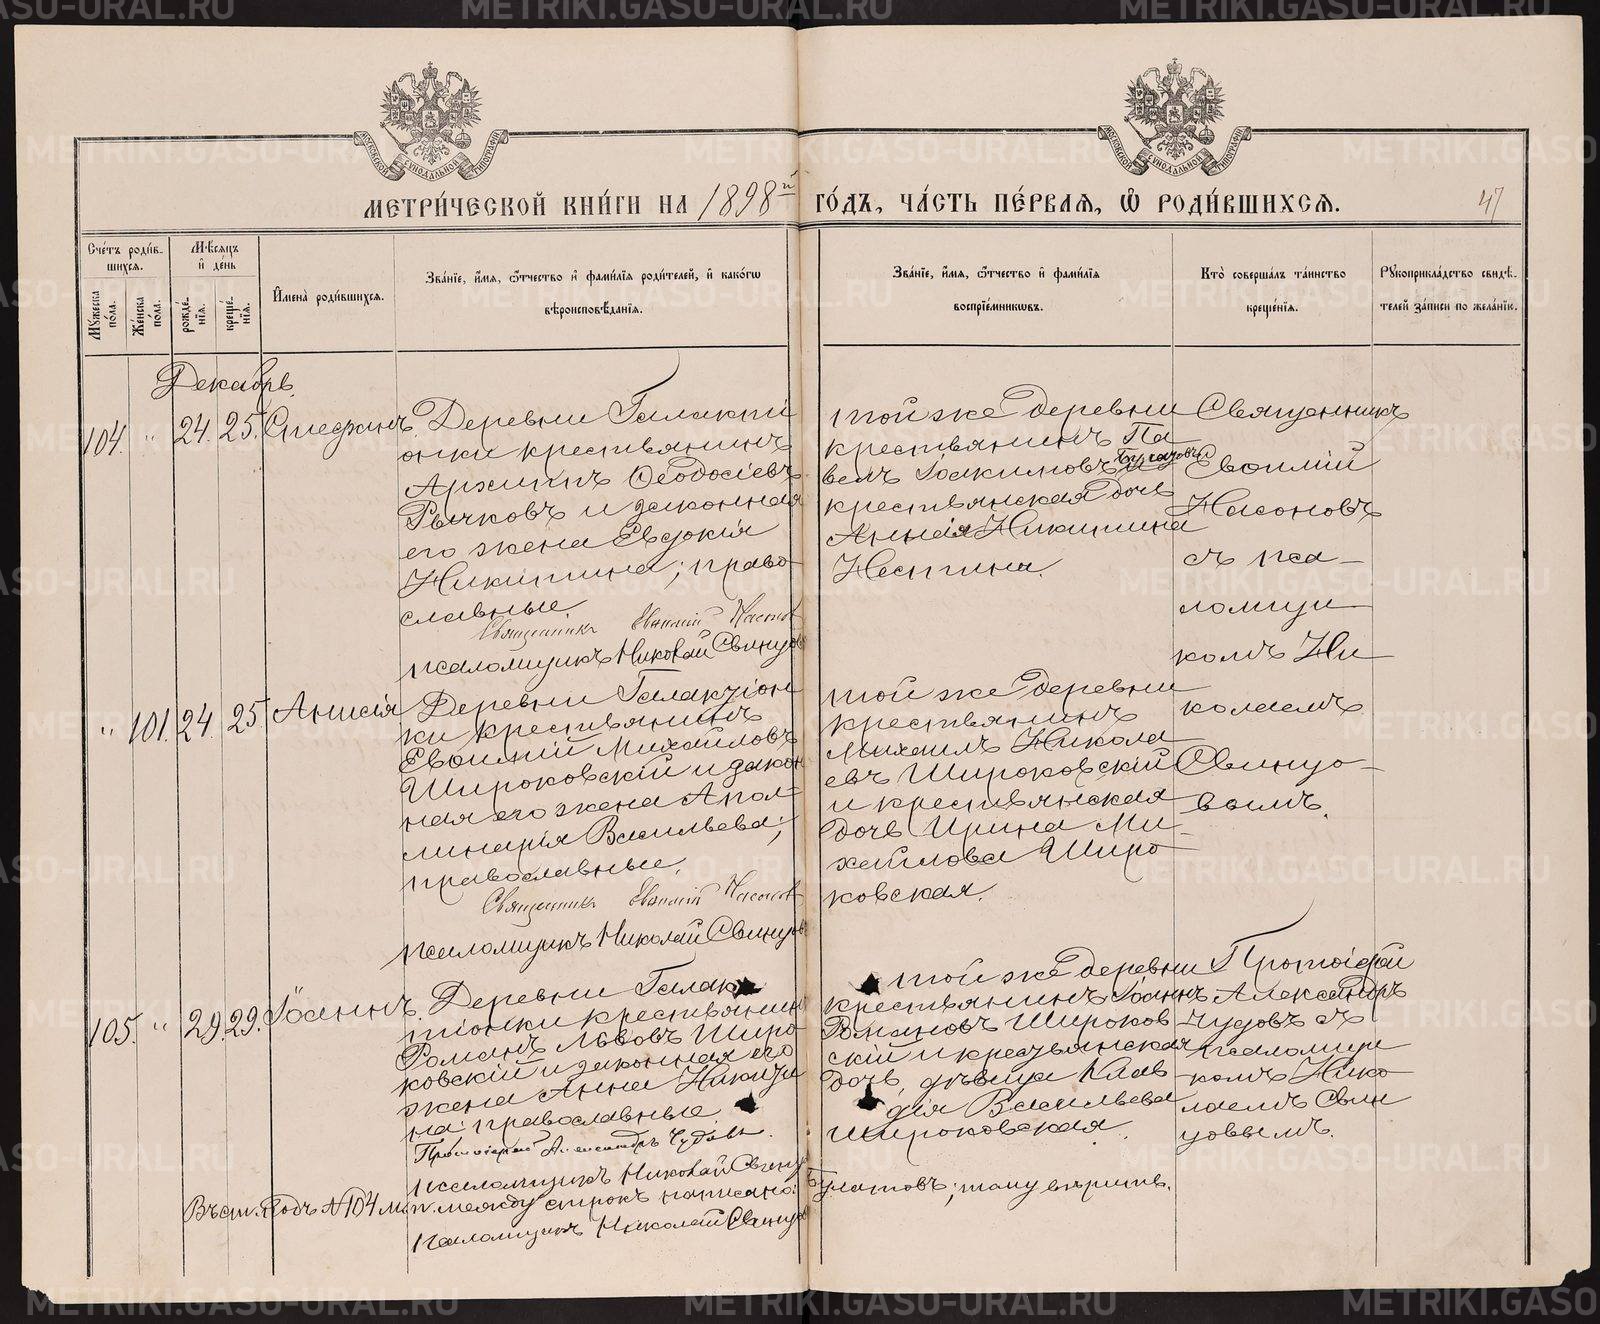 МЕТРИ́ЧЕСКОЙ КНИ́ГИ НА 1898й ГО́ДЪ, ЧА́СТЬ ПЕ́РВАѦ, Ѡ҆ РОДИ́ВШИХСѦ.
47
Сче́тъ роди́в-
шихсѧ.
Мꙋ́жеска по́ла.
Же́нска по́ла.
Мѣ́сѧцъ
и҆ де́нь
рожде́-
нїѧ.
креще́-
нїѧ.
И҆мена̀ роди́вшихсѧ.
Зва́нїе, и҆́мѧ, ѻ҆́тчество и҆ фами́лїѧ роди́телей, и҆ како́гѡ
вѣроисповѣ́данїѧ.
Зва́нїе, и҆́мѧ, ѻ҆́тчество и҆ фами́лїѧ
воспрїе́мникѡвъ.
Кто̀ соверша́лъ та́инство
креще́нїѧ.
Рꙋкоприкла́дство свидѣ́-
телей за́писи по жела́нїю.
Декабрь.
104. " 24. 25. Стефанъ.
Деревни Галакті
онки крестьянинъ
Архиппъ Ѳеодосіевъ
Рычковъ и законная
его жена Евдокія
Никитина; право-
славные.
Священникъ Евѳимій Насонов
псаломщикъ Николай Свинцов
той же деревни
крестьянинъ Па
велъ Іоакимовъ Булатовъ
крестьянская дочь
Анна Никитина
Священникъ
Евѳимій
Насоновъ
съ пса-
ломщи
комъ Ни
колаемъ
Свинцо-
вымъ.
" 101. 24. 25. Анисія
Деревни Галакτіон
ки крестьянинъ
Евѳимій Михайловъ
Широковскій и закон
ная его жена Апол-
линарія Васильева;
православные.
Священникъ Евѳимій Насонов
псаломщикъ Николай Свинцов
той же деревни
крестьянинъ
Михаилъ Никола
евъ Широковскій
и крестьянская
дочь Ирина Ми-
хайлова Широ
ковская.
105. " 29. 29. Іоаннъ.
Деревни Галак
тіонки крестьянин
Романъ Львовъ Широ
ковскій и законная его
жена Анна Никити
на; православные
Протоіерей Александръ Чудовъ.
псаломщикъ Николай Свинц
той же деревни
крестьянинъ Іоаннъ
Романовъ Широков
скій и крестьянская
дочь, дѣвица Клав
дія Васильева
Широковская.
Протоіерей
Александръ
Чудовъ съ
псаломщи
комъ Нико
лаемъ Свин
цовымъ.
Въ ст. подъ №104 м. п. между строкъ написано: Булатовъ; тому вѣрить.
псаломщикъ Николай Свинцов
METRIKI.GASO-URAL.RU